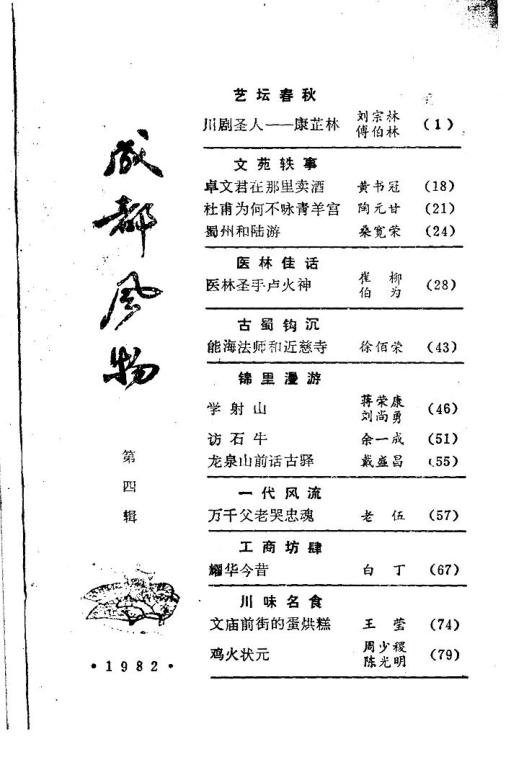 成都风物
第四辑
·1982·
艺坛春秋
川剧圣人——康芷林 刘宗林 傅伯林 (1)
文苑轶事
卓文君在那里卖酒 黄书冠 (18)
杜甫为何不咏青羊宫 陶元甘 (21)
蜀州和陆游 桑宽荣 (24)
医林佳话
医林圣手卢火神 崔柳 伯为 (28)
古蜀钩沉
能海法师和近慈寺 徐佰荣 (43)
锦里漫游
学射山 蒋荣康 刘尚勇 (46)
访石牛 余一成 (51)
龙泉山前话古驿 戴盛昌 (55)
一代风流
万千父老哭忠魂 老伍 (57)
工商坊肆
耀华今昔 白丁 (67)
川味名食
文庙前街的蛋烘糕 王莹 (74)
鸡火状元 周少稷 陈光明 (79)